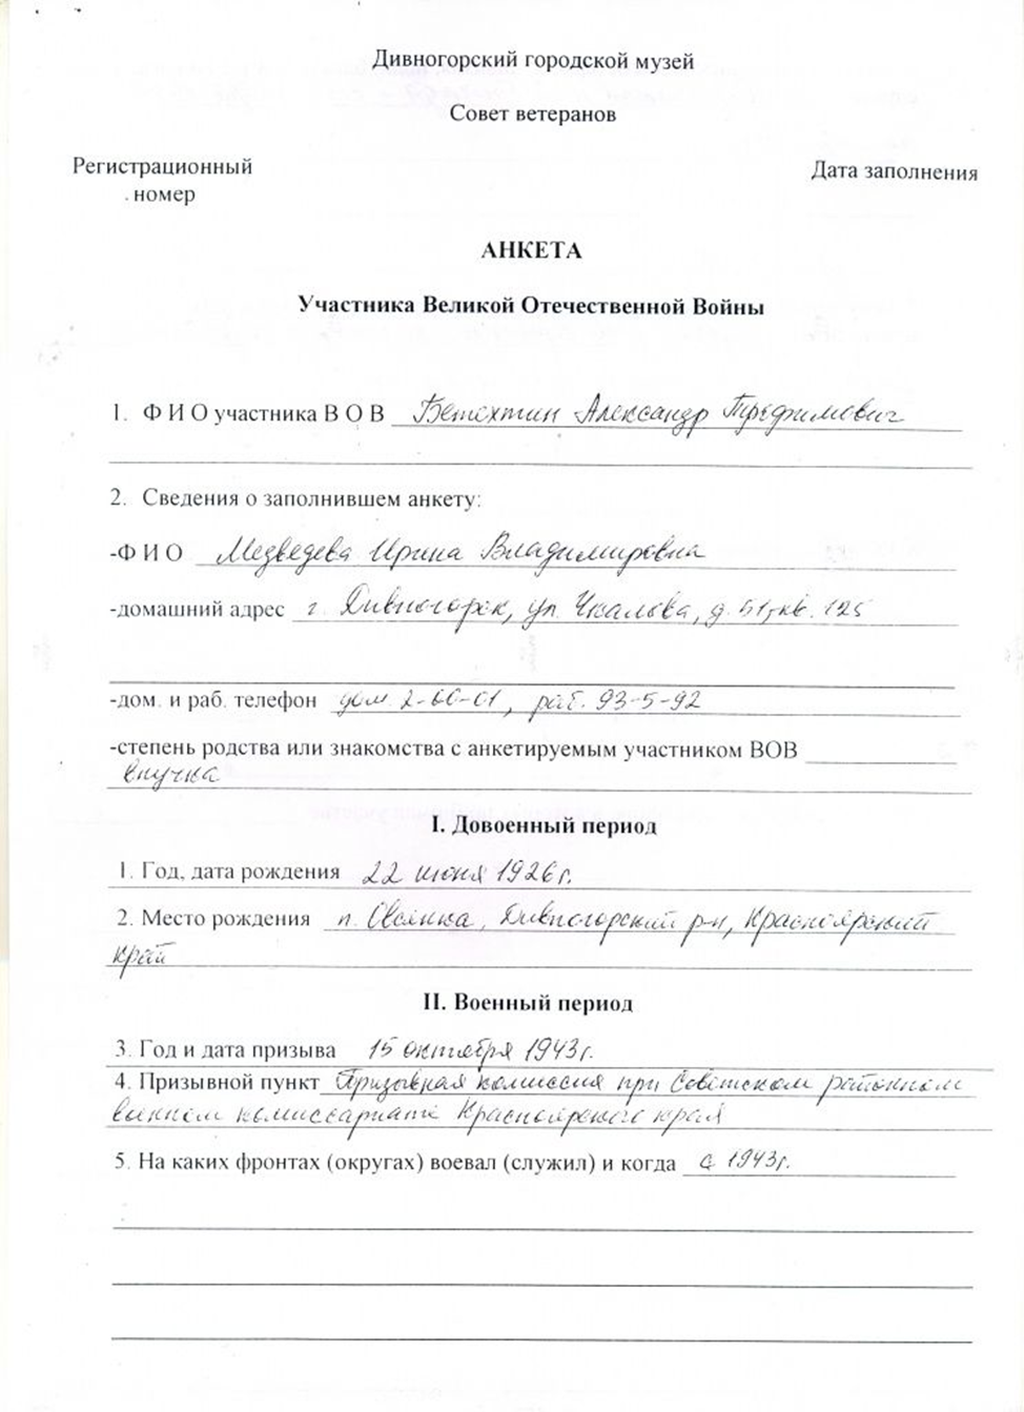 Дивногорский городской музей
Совет ветеранов
Регистрационный
номер
Дата заполнения
АНКЕТА
Участника Великой Отечественной Войны
1. Ф И О участника В О В Бетехтин Александр Трефимович
2. Сведения о заполнившем анкету:
-Ф И О Медведева Ирина Владимировна
-домашний адрес г. Дивногорск, ул. Чкалова, д. 51, кв. 125
-дом. и раб. телефон дом. 2-60-01, раб. 93-5-92
-степень родства или знакомства с анкетируемым участником ВОВ
внучка
I. Довоенный период
1. Год, дата рождения 22 июня 1926 г.
2. Место рождения п. Овсянка, Дивногорский р-н, Красноярский
край
II. Военный период
3. Год и дата призыва 15 октября 1943 г.
4. Призывной пункт Призывная комиссия при Советском районном
военном комиссариате Красноярского края
5. На каких фронтах (округах) воевал (служил) и когда с 1943 г.